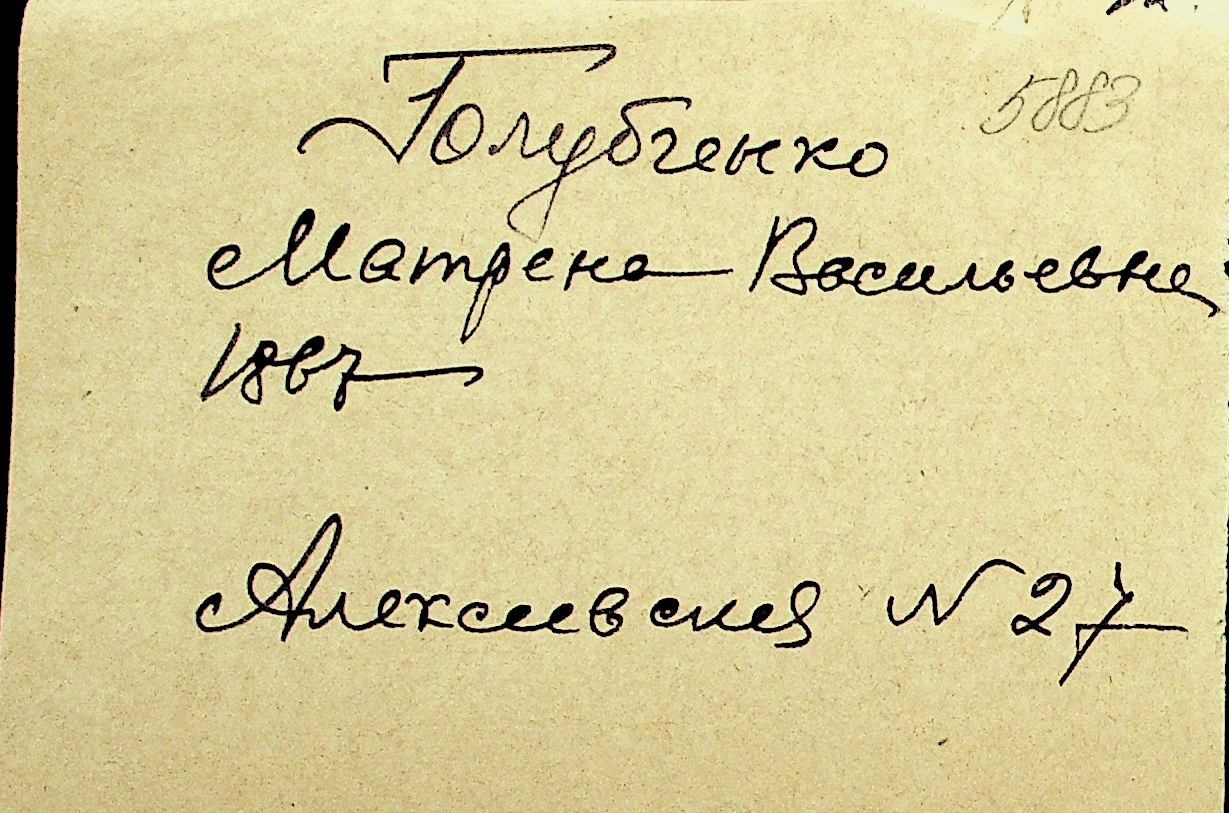 5883
Голубченко
Матрена Васильевна
1867
Алексеевская N 27